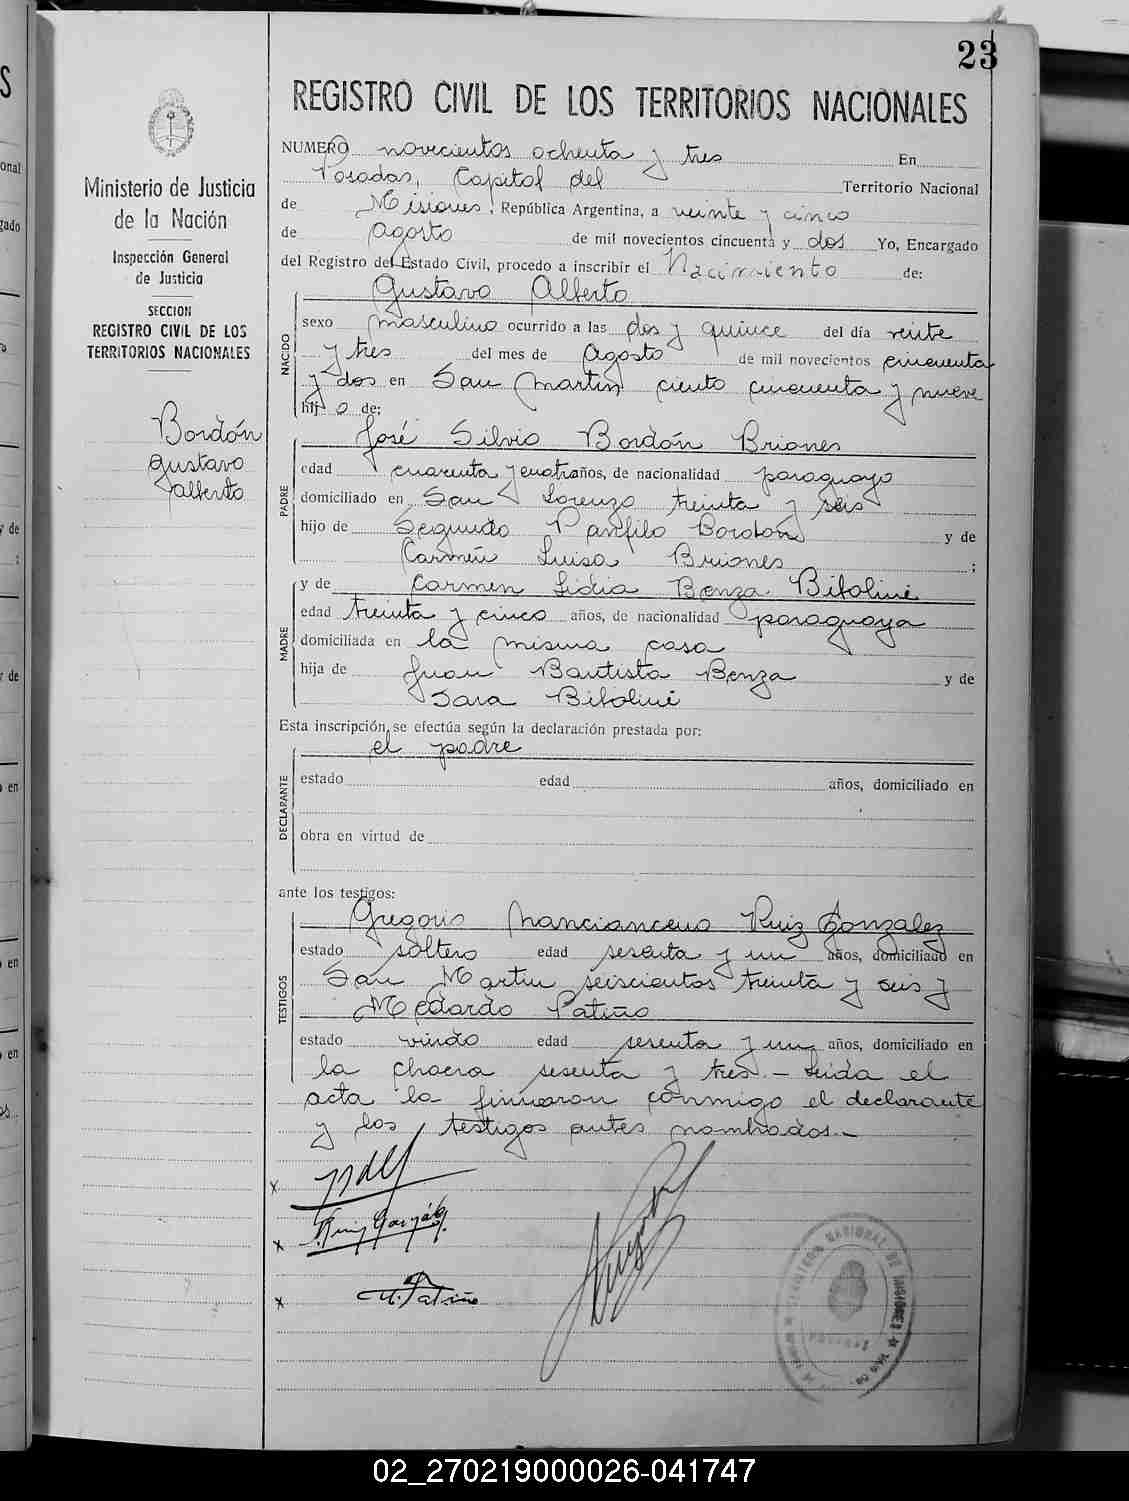 23
REGISTRO CIVIL DE LOS TERRITORIOS NACIONALES
Ministerio de Justicia
de la Nación
Inspección General
de Justicia
SECCION
REGISTRO CIVIL DE LOS
TERRITORIOS NACIONALES
Bordón
Gustavo
Alberto
NUMERO novecientos ochenta y tres En
Posadas, Capital del Territorio Nacional
de Misiones, República Argentina, a veinte y cinco
de Agosto de mil novecientos cincuenta y dos Yo, Encargado
del Registro del Estado Civil, procedo a inscribir el Nacimiento de:
Gustavo Alberto
NACIDO
sexo masculino ocurrido a las dos y quince del día veinte
y tres del mes de Agosto de mil novecientos cincuenta
y dos en San Martin ciento cincuenta y nueve
hij o de:
José Silvio Bordón Briones
PADRE
edad cuarenta y cuatro años, de nacionalidad paraguayo
domiciliado en San Lorenzo treinta y seis
hijo de Segundo Panfilo Bordón y de
Carmen Luisa Briones ;
y de Carmen Lidia Benza Bitolini
MADRE
edad treinta y cinco años, de nacionalidad paraguaya
domiciliada en la misma casa
hija de Juan Bautista Benza y de
Sara Bitolini
Esta inscripción se efectúa según la declaración prestada por:
el padre
DECLARANTE
estado edad años, domiciliado en
obra en virtud de
ante los testigos:
Gregorio Ruiz Gonzalez
TESTIGOS
estado soltero edad sesenta y un años, domiciliado en
San Martin seiscientos treinta y seis y
Medardo Patiño
estado viudo edad sesenta y un años, domiciliado en
la chacra sesenta y tres.- Leida el
acta la firmaron conmigo el declarante
y los testigos antes nombrados.-
x
x Ruiz González
x M. Patiño
NACIONAL DE MISIONES
POSADAS
02_270219000026-041747